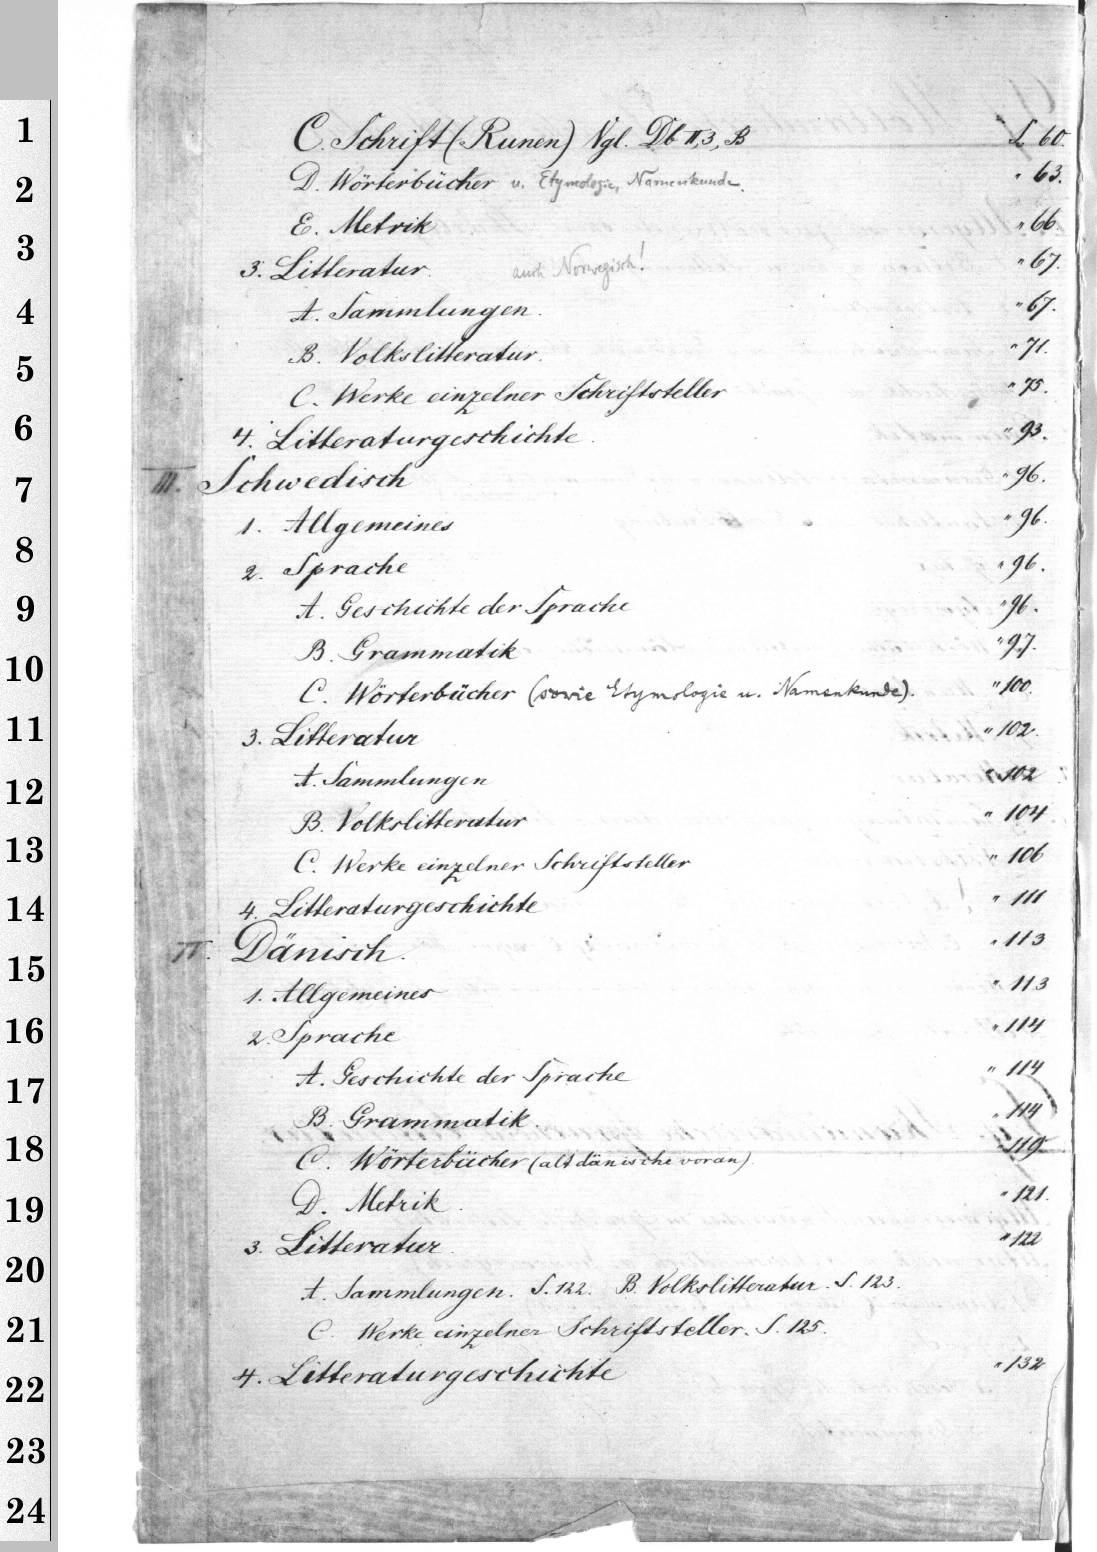 C. Schrift (Runen) Vgl. Db II, 3, B S. 60.
D. Wörterbücher u. Etymologie, Namenkunde. " 63.
E. Metrik " 66.
3. Litteratur. auch Norwegisch! " 67.
A. Sammlungen. " 67.
B. Volkslitteratur. " 71.
C. Werke einzelner Schriftsteller " 75.
4. Litteraturgeschichte. " 93.
III. Schwedisch " 96.
1. Allgemeines " 96.
2. Sprache " 96.
A. Geschichte der Sprache " 96.
B. Grammatik " 97.
C. Wörterbücher (sowie Etymologie u. Namenkunde). " 100.
3. Litteratur " 102.
A. Sammlungen " 102
B. Volkslitteratur " 104
C. Werke einzelner Schriftsteller " 106
4. Litteraturgeschichte " 111
IV. Dänisch. " 113
1. Allgemeines " 113
2. Sprache " 114
A. Geschichte der Sprache " 114
B. Grammatik. " 114
C. Wörterbücher (altdänische voran) " 119
D. Metrik. " 121.
3. Litteratur. " 122
A. Sammlungen. S. 122. B. Volkslitteratur. S. 123.
C. Werke einzelner Schriftsteller. S. 125.
4. Litteraturgeschichte " 132
1
2
3
4
5
6
7
8
9
10
11
12
13
14
15
16
17
18
19
20
21
22
23
24